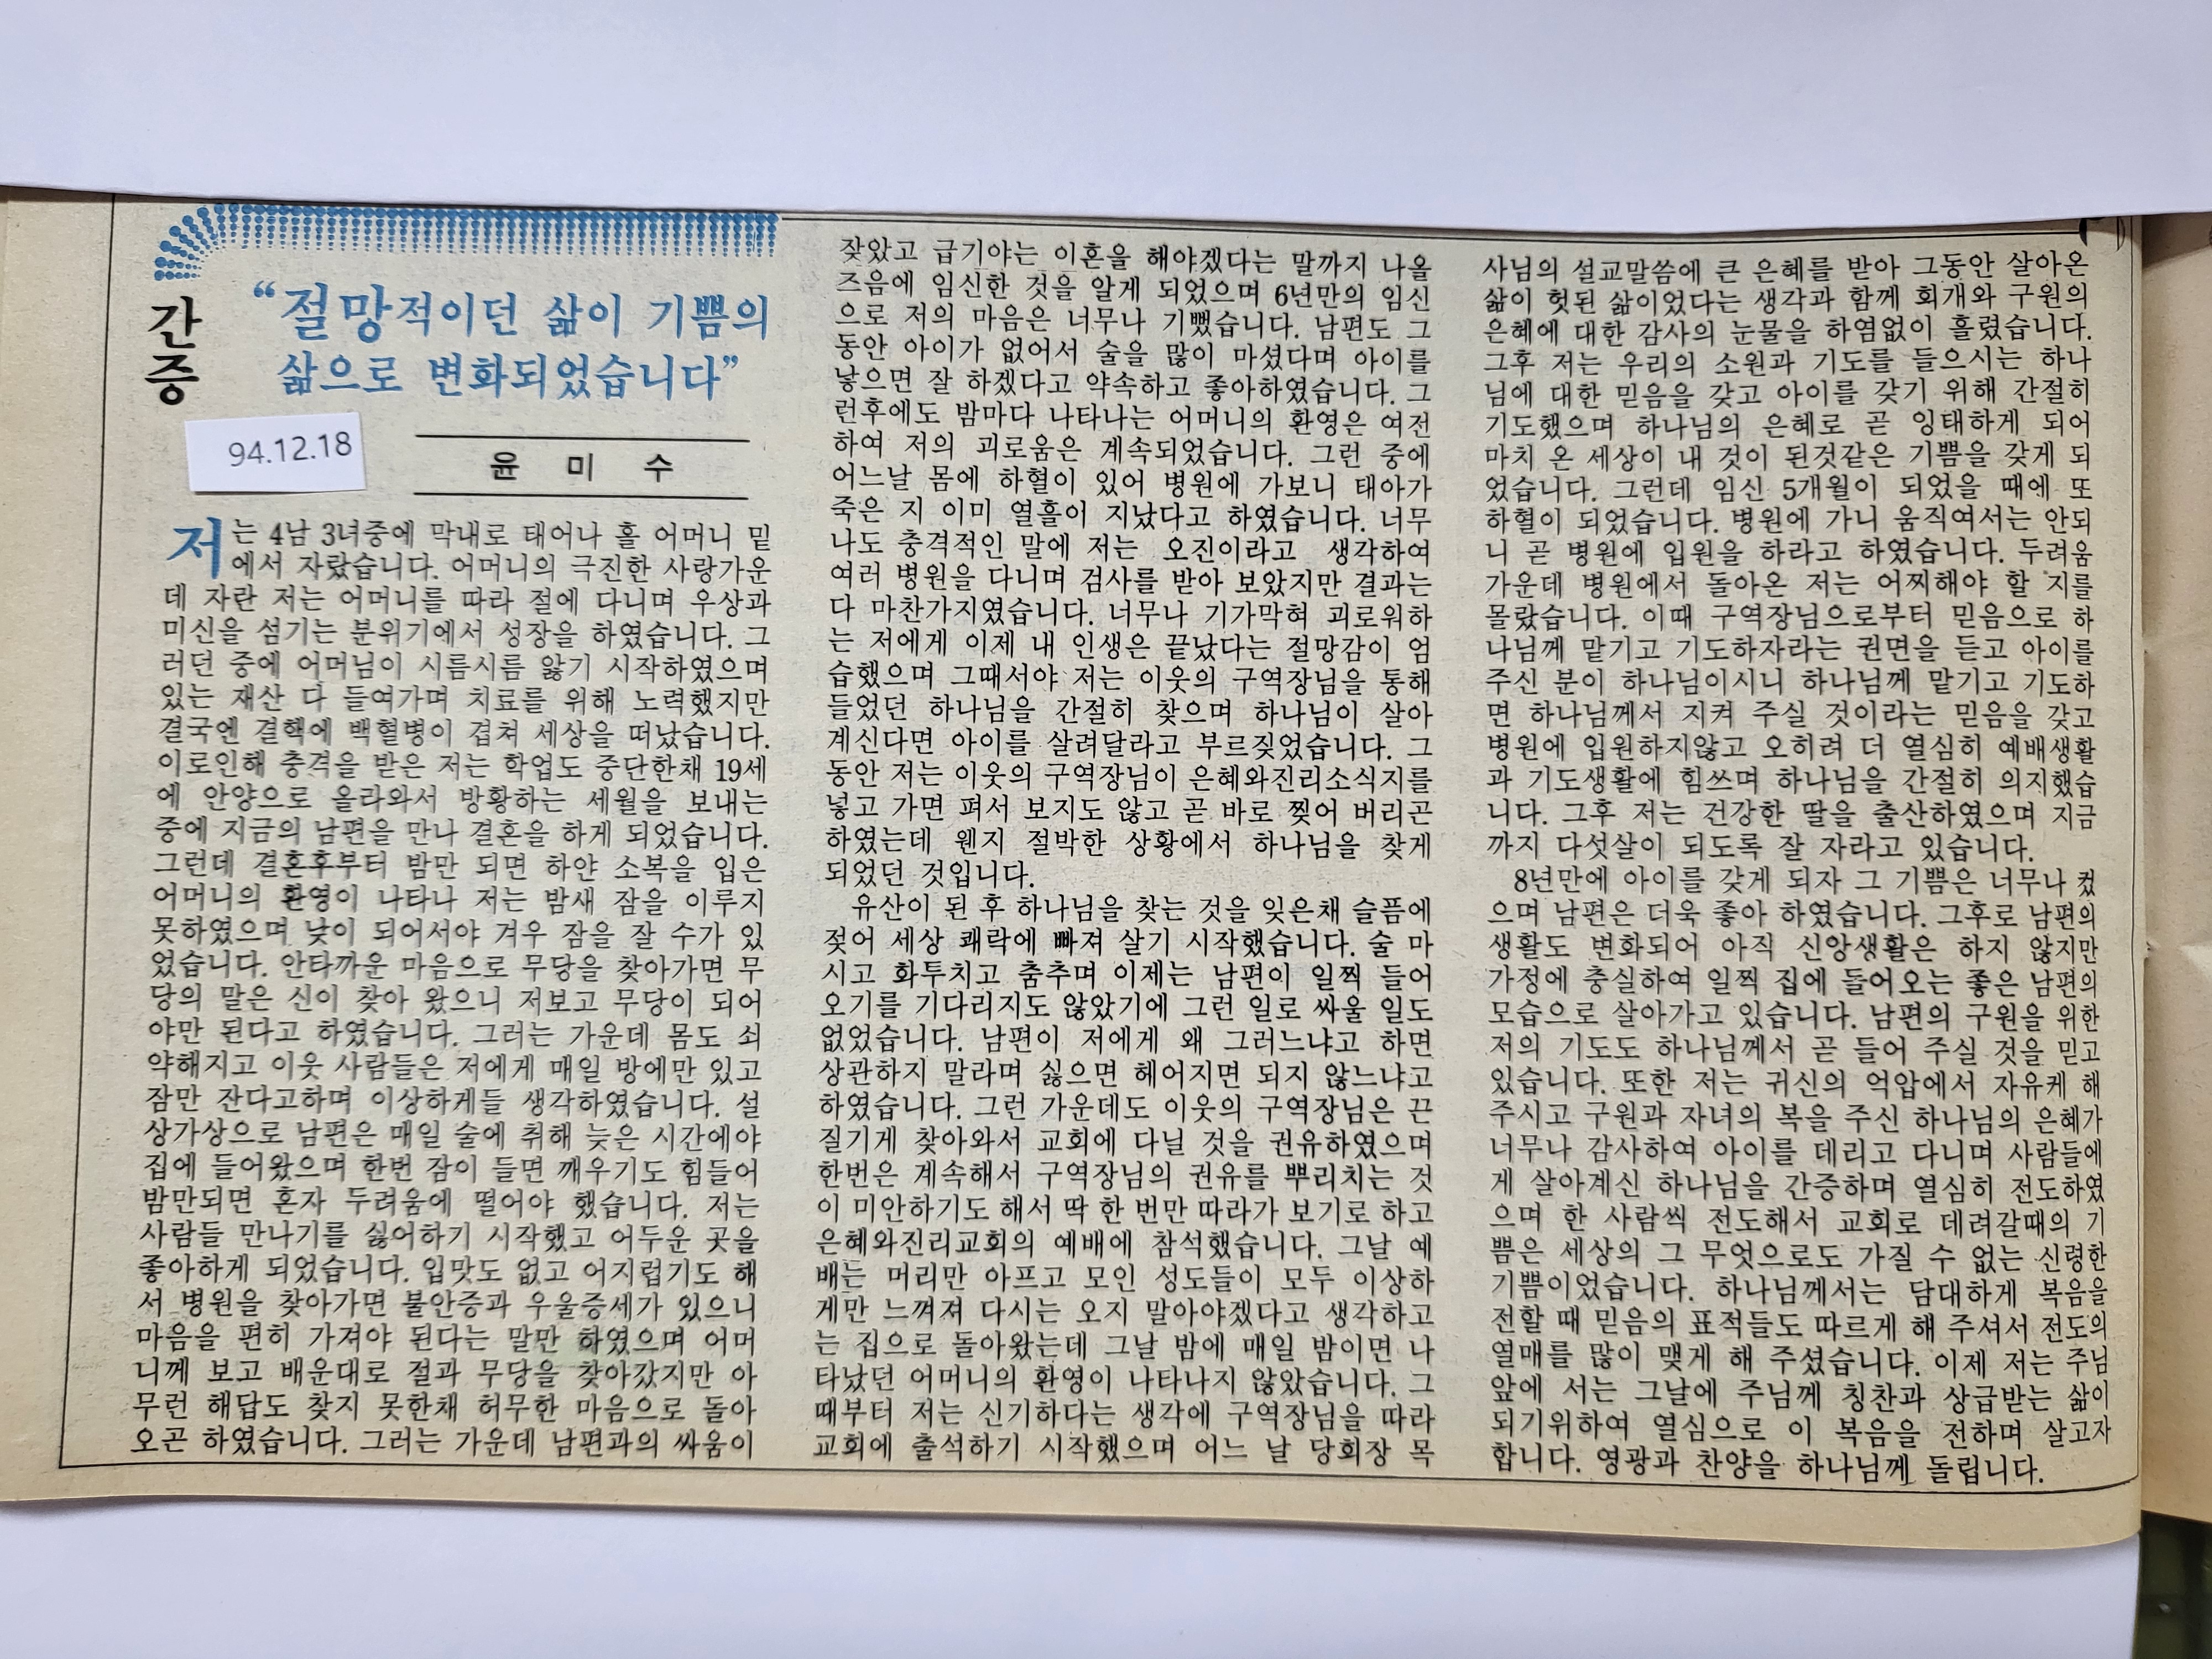 간증
“절망적이던 삶이 기쁨의
삶으로 변화되었습니다”
94.12.18
윤 미 수
저는 4남 3녀중에 막내로 태어나 홀 어머니 밑
에서 자랐습니다. 어머니의 극진한 사랑가운
데 자란 저는 어머니를 따라 절에 다니며 우상과
미신을 섬기는 분위기에서 성장을 하였습니다. 그
러던 중에 어머님이 시름시름 앓기 시작하였으며
있는 재산 다 들여가며 치료를 위해 노력했지만
결국엔 결핵에 백혈병이 겹쳐 세상을 떠났습니다.
이로인해 충격을 받은 저는 학업도 중단한채 19세
에 안양으로 올라와서 방황하는 세월을 보내는
중에 지금의 남편을 만나 결혼을 하게 되었습니다.
그런데 결혼후부터 밤만 되면 하얀 소복을 입은
어머니의 환영이 나타나 저는 밤새 잠을 이루지
못하였으며 낮이 되어서야 겨우 잠을 잘 수가 있
었습니다. 안타까운 마음으로 무당을 찾아가면 무
당의 말은 신이 찾아 왔으니 저보고 무당이 되어
야만 된다고 하였습니다. 그러는 가운데 몸도 쇠
약해지고 이웃 사람들은 저에게 매일 방에만 있고
잠만 잔다고하며 이상하게들 생각하였습니다. 설
상가상으로 남편은 매일 술에 취해 늦은 시간에야
집에 들어왔으며 한번 잠이 들면 깨우기도 힘들어
밤만되면 혼자 두려움에 떨어야 했습니다. 저는
사람들 만나기를 싫어하기 시작했고 어두운 곳을
좋아하게 되었습니다. 입맛도 없고 어지럽기도 해
서 병원을 찾아가면 불안증과 우울증세가 있으니
마음을 편히 가져야 된다는 말만 하였으며 어머
니께 보고 배운대로 절과 무당을 찾아갔지만 아
무런 해답도 찾지 못한채 허무한 마음으로 돌아
오곤 하였습니다. 그러는 가운데 남편과의 싸움이
잦았고 급기야는 이혼을 해야겠다는 말까지 나올
즈음에 임신한 것을 알게 되었으며 6년만의 임신
으로 저의 마음은 너무나 기뻤습니다. 남편도 그
동안 아이가 없어서 술을 많이 마셨다며 아이를
낳으면 잘 하겠다고 약속하고 좋아하였습니다. 그
런후에도 밤마다 나타나는 어머니의 환영은 여전
하여 저의 괴로움은 계속되었습니다. 그런 중에
어느날 몸에 하혈이 있어 병원에 가보니 태아가
죽은 지 이미 열흘이 지났다고 하였습니다. 너무
나도 충격적인 말에 저는 오진이라고 생각하여
여러 병원을 다니며 검사를 받아 보았지만 결과는
다 마찬가지였습니다. 너무나 기가막혀 괴로워하
는 저에게 이제 내 인생은 끝났다는 절망감이 엄
습했으며 그때서야 저는 이웃의 구역장님을 통해
들었던 하나님을 간절히 찾으며 하나님이 살아
계신다면 아이를 살려달라고 부르짖었습니다. 그
동안 저는 이웃의 구역장님이 은혜와진리소식지를
넣고 가면 펴서 보지도 않고 곧 바로 찢어 버리곤
하였는데 웬지 절박한 상황에서 하나님을 찾게
되었던 것입니다.
유산이 된 후 하나님을 찾는 것을 잊은채 슬픔에
젖어 세상 쾌락에 빠져 살기 시작했습니다. 술 마
시고 화투치고 춤추며 이제는 남편이 일찍 들어
오기를 기다리지도 않았기에 그런 일로 싸울 일도
없었습니다. 남편이 저에게 왜 그러느냐고 하면
상관하지 말라며 싫으면 헤어지면 되지 않느냐고
하였습니다. 그런 가운데도 이웃의 구역장님은 끈
질기게 찾아와서 교회에 다닐 것을 권유하였으며
한번은 계속해서 구역장님의 권유를 뿌리치는 것
이 미안하기도 해서 딱 한 번만 따라가 보기로 하고
은혜와진리교회의 예배에 참석했습니다. 그날 예
배는 머리만 아프고 모인 성도들이 모두 이상하
게만 느껴져 다시는 오지 말아야겠다고 생각하고
는 집으로 돌아왔는데 그날 밤에 매일 밤이면 나
타났던 어머니의 환영이 나타나지 않았습니다. 그
때부터 저는 신기하다는 생각에 구역장님을 따라
교회에 출석하기 시작했으며 어느 날 당회장 목
사님의 설교말씀에 큰 은혜를 받아 그동안 살아온
삶이 헛된 삶이었다는 생각과 함께 회개와 구원의
은혜에 대한 감사의 눈물을 하염없이 흘렸습니다.
그후 저는 우리의 소원과 기도를 들으시는 하나
님에 대한 믿음을 갖고 아이를 갖기 위해 간절히
기도했으며 하나님의 은혜로 곧 잉태하게 되어
마치 온 세상이 내 것이 된것같은 기쁨을 갖게 되
었습니다. 그런데 임신 5개월이 되었을 때에 또
하혈이 되었습니다. 병원에 가니 움직여서는 안되
니 곧 병원에 입원을 하라고 하였습니다. 두려움
가운데 병원에서 돌아온 저는 어찌해야 할 지를
몰랐습니다. 이때 구역장님으로부터 믿음으로 하
나님께 맡기고 기도하자라는 권면을 듣고 아이를
주신 분이 하나님이시니 하나님께 맡기고 기도하
면 하나님께서 지켜 주실 것이라는 믿음을 갖고
병원에 입원하지않고 오히려 더 열심히 예배생활
과 기도생활에 힘쓰며 하나님을 간절히 의지했습
니다. 그후 저는 건강한 딸을 출산하였으며 지금
까지 다섯살이 되도록 잘 자라고 있습니다.
8년만에 아이를 갖게 되자 그 기쁨은 너무나 컸
으며 남편은 더욱 좋아 하였습니다. 그후로 남편의
생활도 변화되어 아직 신앙생활은 하지 않지만
가정에 충실하여 일찍 집에 돌어오는 좋은 남편의
모습으로 살아가고 있습니다. 남편의 구원을 위한
저의 기도도 하나님께서 곧 들어 주실 것을 믿고
있습니다. 또한 저는 귀신의 억압에서 자유케 해
주시고 구원과 자녀의 복을 주신 하나님의 은혜가
너무나 감사하여 아이를 데리고 다니며 사람들에
게 살아계신 하나님을 간증하며 열심히 전도하였
으며 한 사람씩 전도해서 교회로 데려갈때의 기
쁨은 세상의 그 무엇으로도 가질 수 없는 신령한
기쁨이었습니다. 하나님께서는 담대하게 복음을
전할 때 믿음의 표적들도 따르게 해 주셔서 전도의
열매를 많이 맺게 해 주셨습니다. 이제 저는 주님
앞에 서는 그날에 주님께 칭찬과 상급받는 삶이
되기위하여 열심으로 이 복음을 전하며 살고자
합니다. 영광과 찬양을 하나님께 돌립니다.